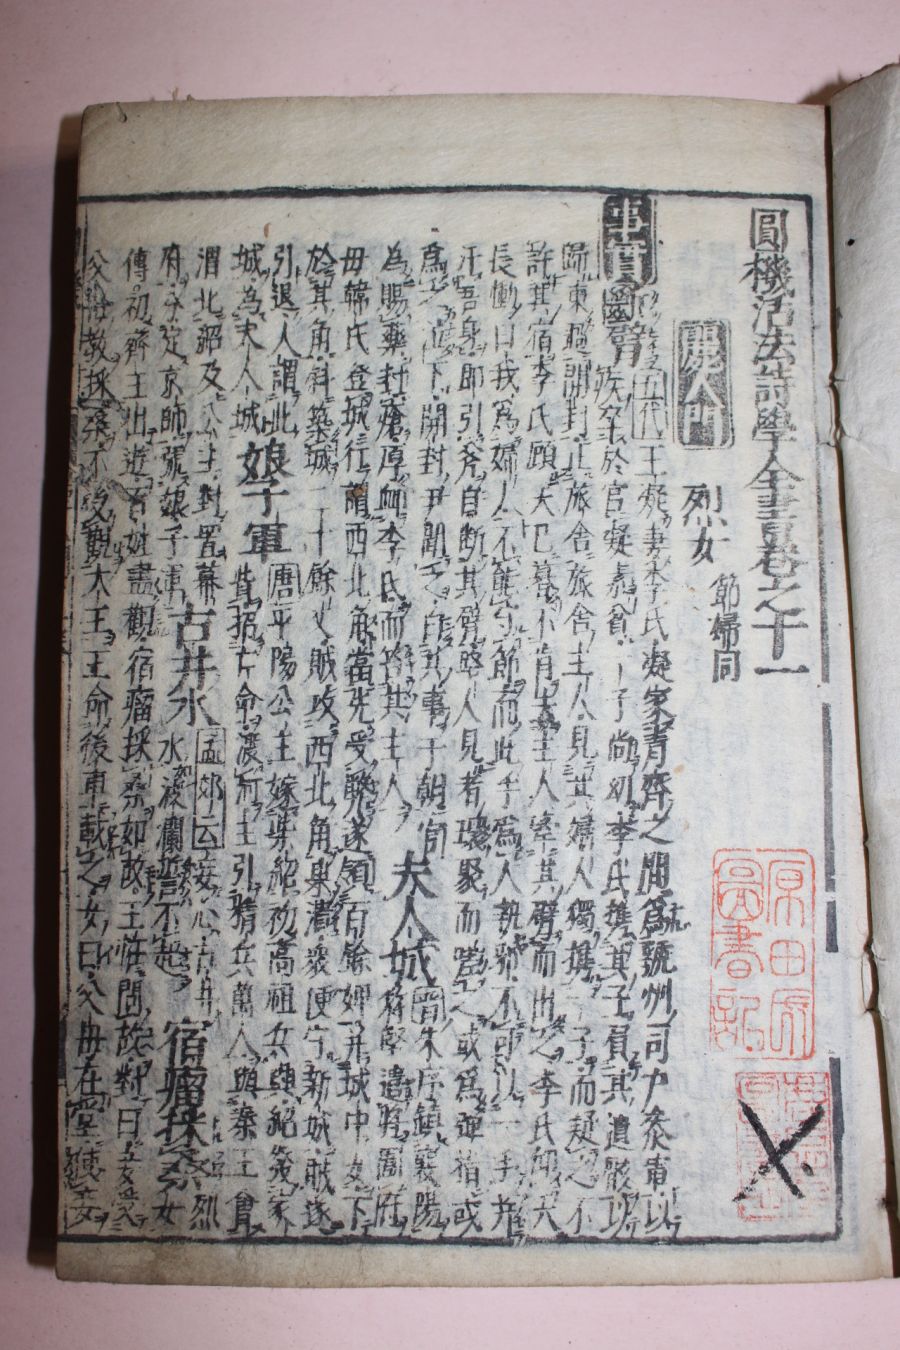 圓機活法詩學全書卷之十一
麗人門 烈女 節婦同
事實 斷臂 五代王凝妻李氏凝家青齊之間爲虢州司户參軍以
疾卒於官凝素貧一子尚幼李氏携其子負其遺骸以
歸東過開封止旅舍旅舍主人見其婦人獨携一子而疑之不
許其宿李氏顧天已暮不肯去主人牽其臂而出之李氏仰天
長慟曰我爲婦人不能守節而此手爲人執邪不可以一手并
汙吾身即引斧自斷其臂路人見者環聚而嗟之或爲彈指或
爲之泣下開封尹聞之白其事于朝官
爲賜藥封瘡厚恤李氏而笞其主人 夫人城 晉朱序鎮襄陽
苻堅遣將圍序
母韓氏登城行謂西北角當先受弊遂領百餘婢并城中女丁
於其角斜築城二十餘丈賊攻西北角果潰衆便守新城賊遂
引退人謂此
城爲夫人城 娘子軍 唐平陽公主嫁柴紹初高祖兵興紹發家
貲招亡命渡河主引精兵萬人與秦王會
渭北紹及公主對置幕
府分定京師號娘子軍 古井水 孟郊云妾心古井
水波瀾誓不起 宿瘤採桑 烈女
傳初齊王出遊百姓盡觀宿瘤採桑如故王怪問故對曰妾受
父母教採桑不受觀大王王命後車載之女曰父母在堂使妾